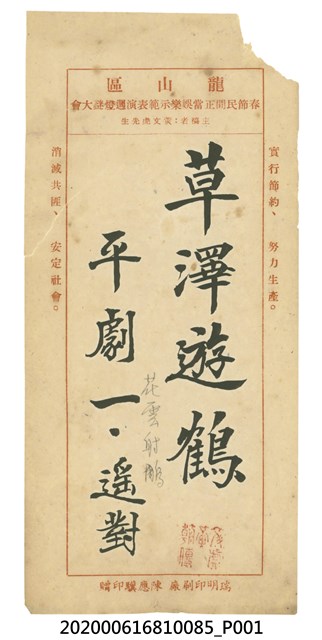 龍山區
春節民間正當娛樂示範表演迎燈謎大會
主稿者：黃文虎先生
實行節約、努力生產。
草澤遊鶴
花雲射鵰
平劇一·遥對
消滅共匪、安定社會。
瑞明印刷廠 陳應驥印贈
202000616810085_P001